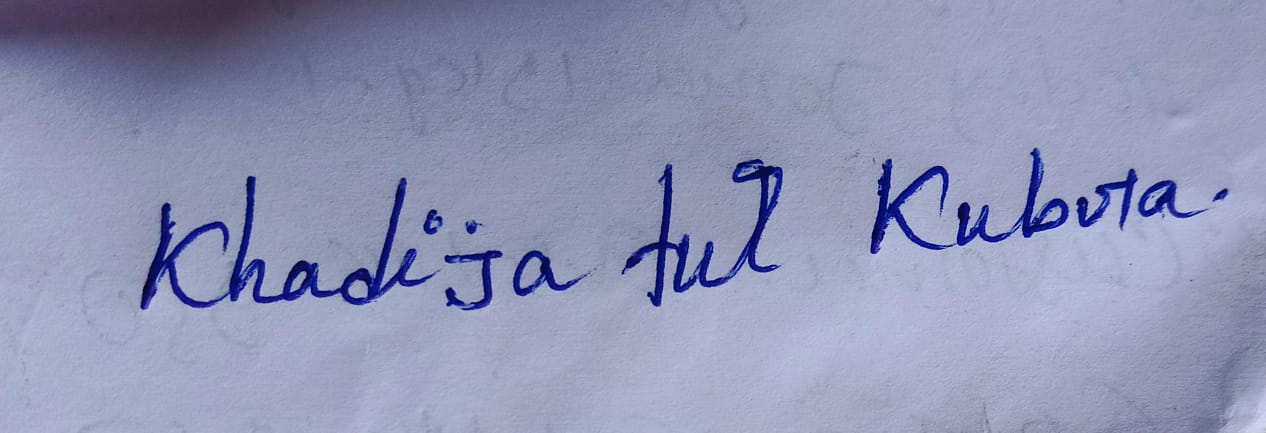 Khadija tul Kubora.